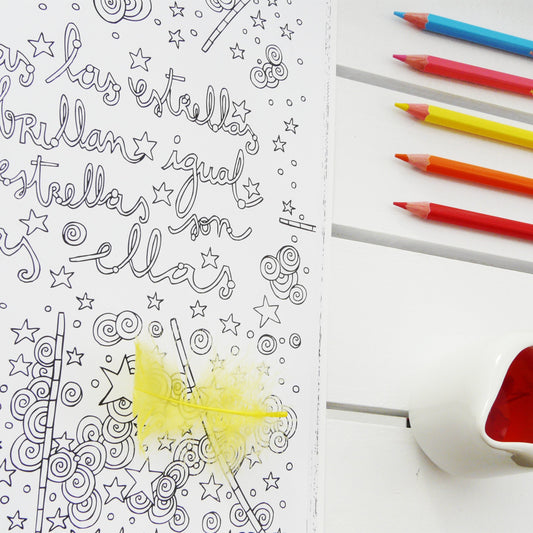 as las estrellas
brillan igual,
estrellas son
as ellas.